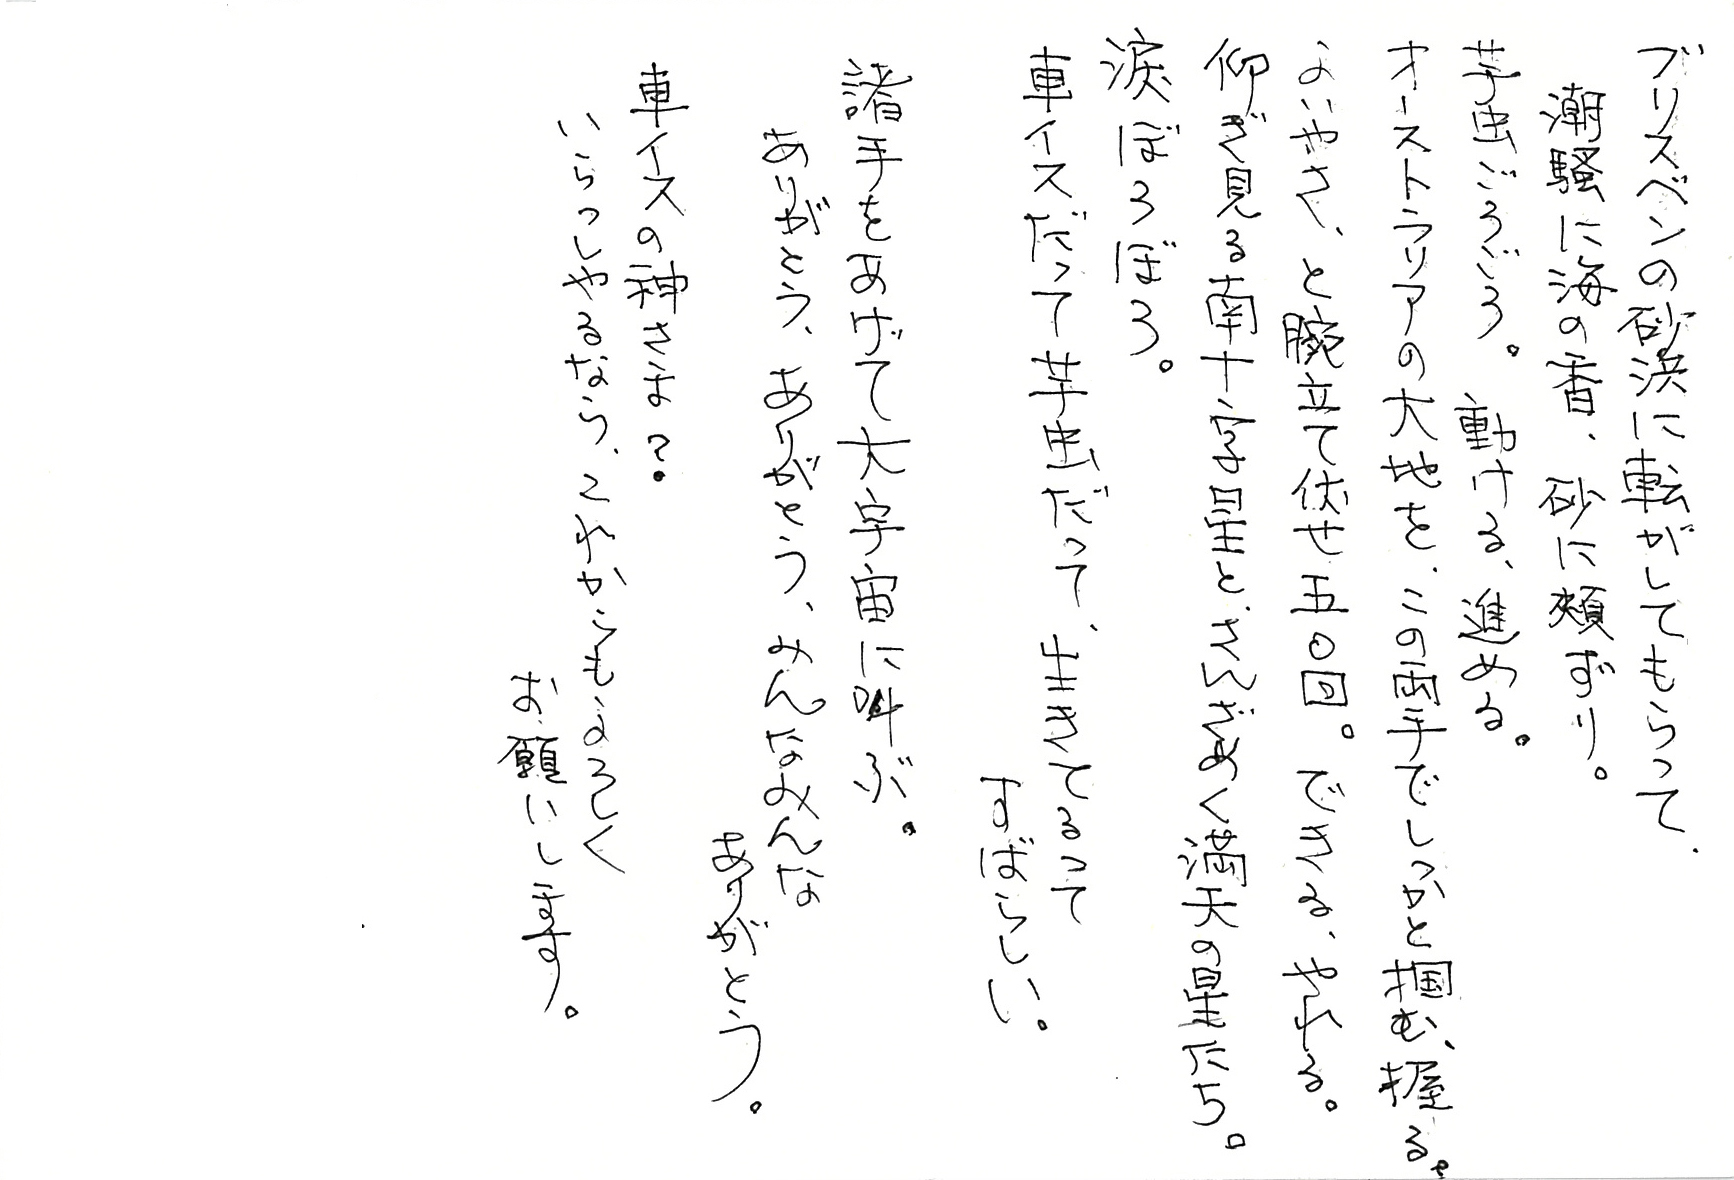 ブリスベンの砂浜に転がしてもらって、
潮騒に海の香、砂に頬ずり。
芋虫ごろごろ。動ける、進める。
オーストラリアの大地を、この両手でしっかと掴む、握る。
よいやさ、と腕立て伏せ五〇回。できる、やれる。
仰ぎ見る南十字星と、さんざめく満天の星たち。
涙ぼろぼろ。
車イスだって芋虫だって、生きてるって
すばらしい。
諸手をあげて大宇宙に叫ぶ。
ありがとう、ありがとう、みんなみんな
ありがとう。
車イスの神さま?
いらっしやるなら、これからもよろしく
お願いします。